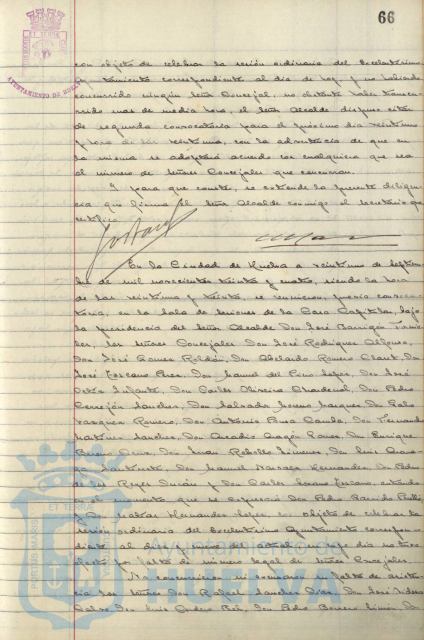 66
AYUNTAMIENTO DE HUELVA
con objeto de celebrar la sesión ordinaria del Excelentísimo
Ayuntamiento correspondiente al día de hoy y no habiendo
concurrido ningún señor Concejal, no obstante haber transcu-
rrido mas de media hora, el señor Alcalde dispuso citar
de segunda convocatoria para el próximo día veintiuno
y hora de las veintiuna, con la advertencia de que en
la misma se adoptará acuerdo con cualquiera que sea
el número de señores Concejales que concurran.
Y para que conste, se extiende la presente diligen-
cia que firma el señor Alcalde conmigo el Secretario que
certifico.
En la Ciudad de Huelva a veintiuno de Septiem-
bre de mil novecientos treinta y cuatro, siendo la hora
de las veintiuna y treinta, se reunieron, previa convoca-
toria, en la Sala de sesiones de la Casa Capitular, bajo
la presidencia del señor Alcalde Don José Barrigón
los señores Concejales Don José Rodríguez Alfonso,
Don José Gómez Roldán, Don Abelardo Romero Claret, Don
José Toscano Pérez, Don Manuel del Pino López, Don José
Infante, Don Carlos Oliveira Chardenal, Don Pedro
Cerrejón Sánchez, Don Salvador Moreno Márquez, Don Pablo
Vázquez Romero, Don Antonio Pousa Camba, Don Fernando
Sánchez, Don Arcadio Aragón Gómez, Don Enrique
Don Juan Rebollo Jiménez, Don Luis
Don Manuel Hernández, Don Pedro
de los Reyes Durán y Don Carlos Lozano entrando
en el momento que se expresará Don Pedro Garrido
y Don Hernández López con objeto de celebrar la
sesión ordinaria del Excelentísimo Ayuntamiento correspon-
diente al día diez y nueve del actual, cuyo día no tuvo
efecto por falta de número legal de señores Concejales.
No concurrieron ni excusaron su falta de asisten-
cia los señores Don Rafael Sánchez Díaz, Don José
Don Luis Cordero Bel, Don Pedro Borrero Limón,
PORTUS MARIS ET TERRAE
Ayuntamiento de
HUELVA